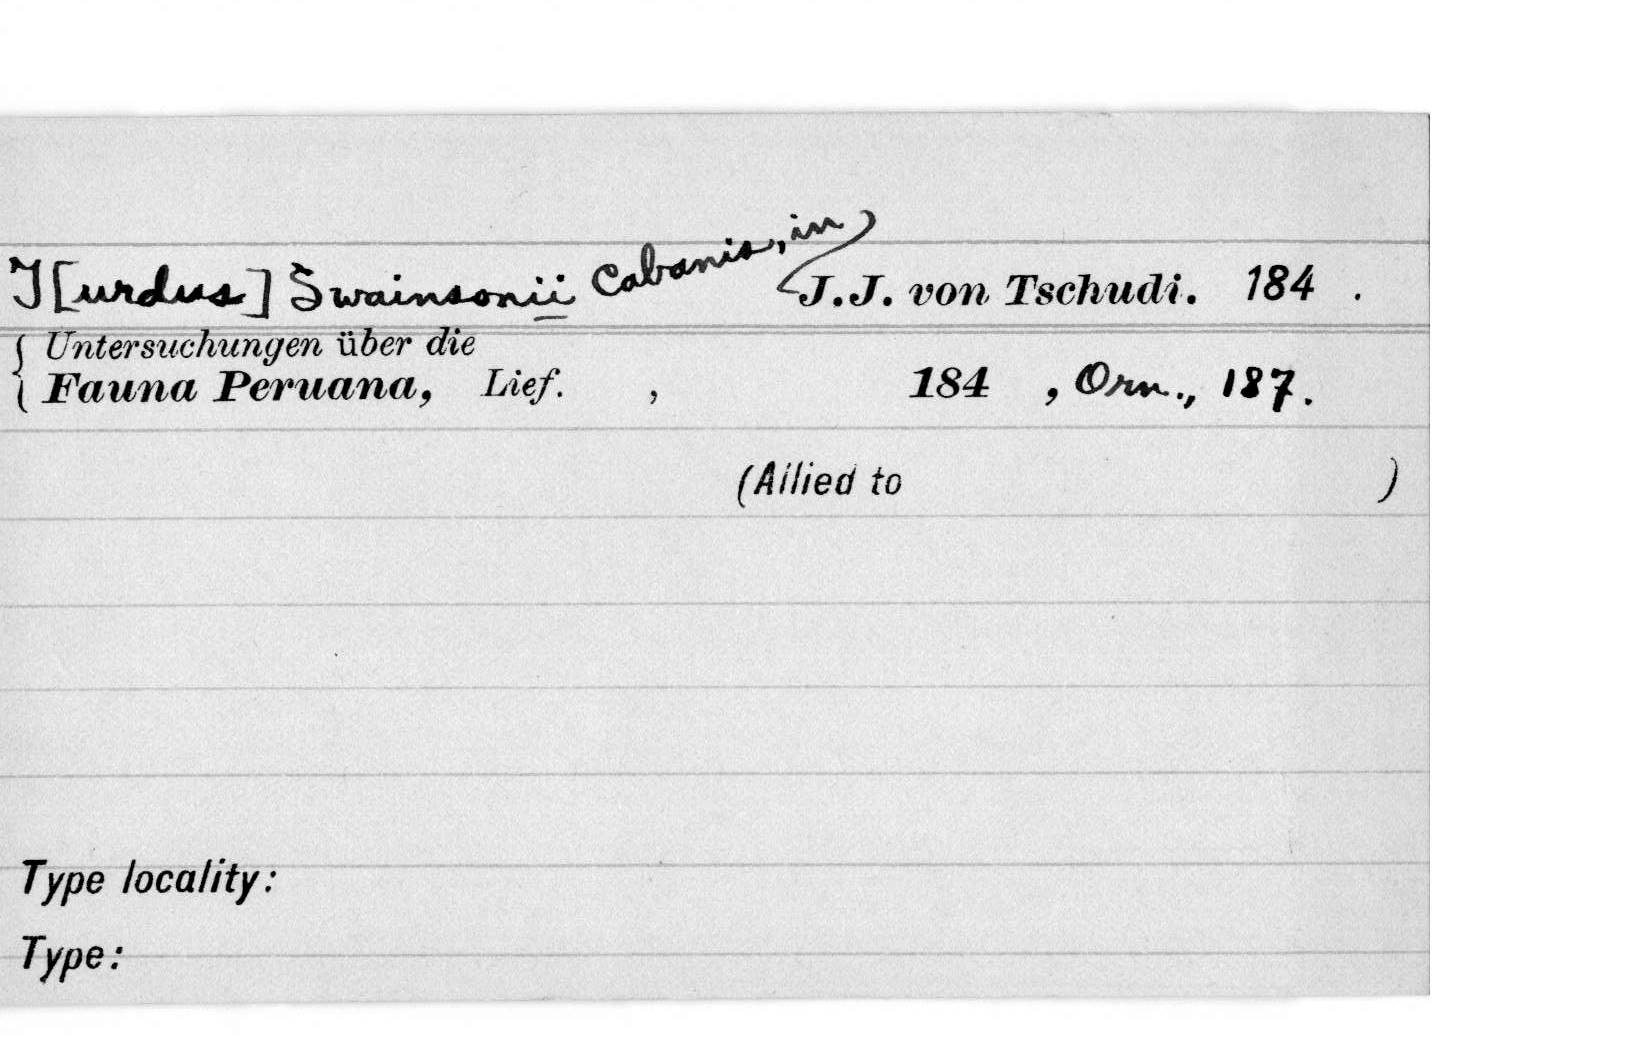 T[urdus] Swainsonii Cabanis, in J. J. von Tschudi. 184 .
Untersuchungen über die
Fauna Peruana, Lief. , 184 , Orn., 187.
(Allied to )
Type locality:
Type: